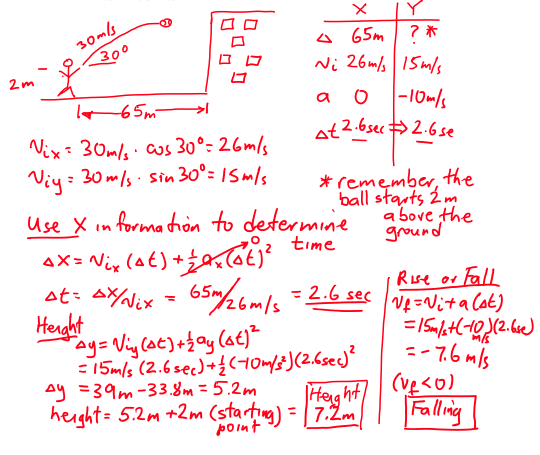 30m/s
30°
2m
65m
X Y
Δ 65m ? *
Vi 26m/s 15m/s
a 0 -10m/s
Δt 2.6sec ⇒ 2.6se
Vix = 30m/s · cos 30° = 26m/s
Viy = 30m/s · sin 30° = 15m/s
* remember, the
ball starts 2m
above the
ground
Use X information to determine
time
Δx = Vix (Δt) + ½ ax (Δt)² 0
Δt = Δx/Vix = 65m/26m/s = 2.6 sec
Height
Δy = Viy (Δt) + ½ ay (Δt)²
= 15m/s (2.6sec) + ½ (-10m/s²)(2.6sec)²
Δy = 39m - 33.8m = 5.2m
height = 5.2m + 2m (starting
point) = Height
7.2m
Rise or Fall
Vf = Vi + a (Δt)
= 15m/s + (-10m/s)(2.6se)
= -7.6 m/s
(Vf < 0)
Falling